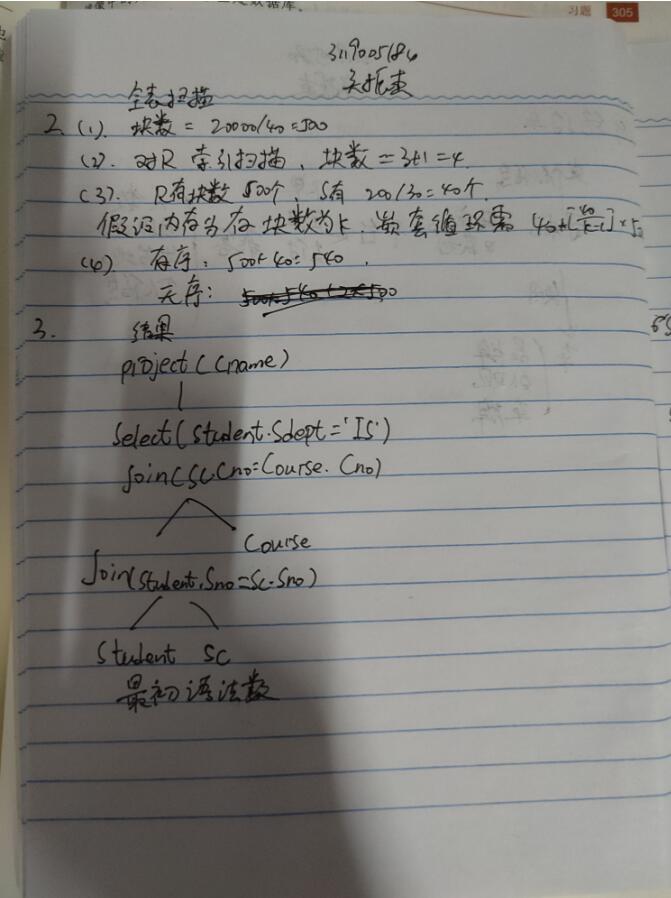 习题 305
3119005184
全表扫描
2. (1). 块数 = 20000/40=500
(2). 对R 索引扫描, 块数=3+1=4
(3). R有块数 500个, S有 1200/30=40个.
假设内存分有块数为k. 嵌套循环需 40+[40/k-1]×5
(4). 有序: 500+40=540.
无序:
3. 结果
project(Cname)
Select(Student.Sdept='IS')
Join(SC.Cno=Course.Cno)
Course
Join(Student.Sno=SC.Sno)
Student SC
最初语法数